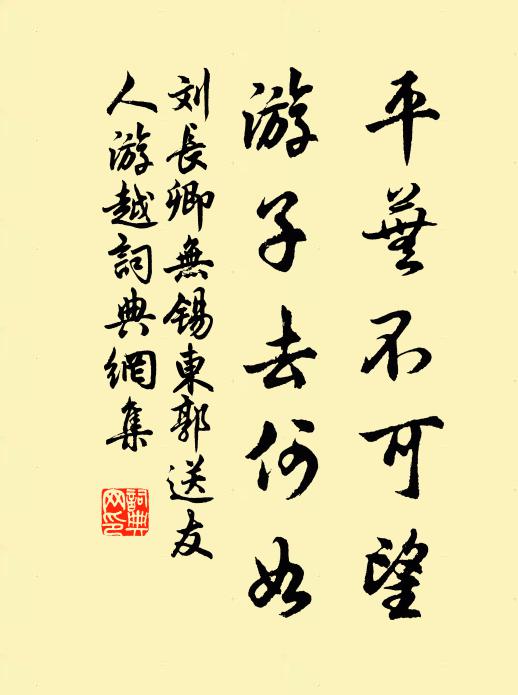 平蕪不可望
游子去何如
刘長卿無錫東郭送友
人游越詞典網集
詞典
网印